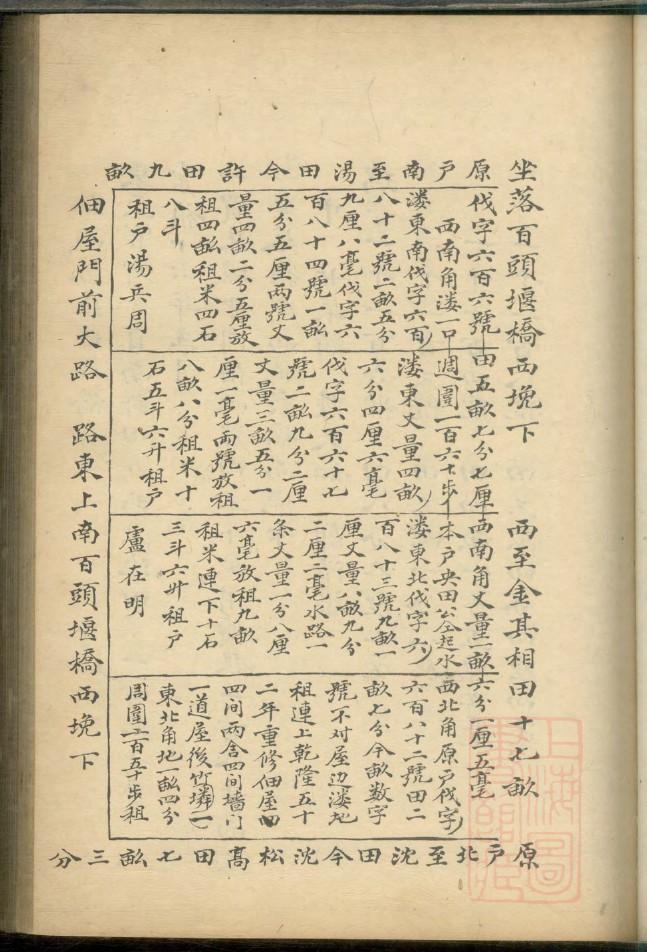 坐落百頭堰橋西堍下　西至金其相田十七畝
原戶南至湯田今許田九畝
伐字六百六號
西南角溇一口
溇東南伐字六百
八十二號二畝五分
九厘八毫伐字六
百八十四號一畝
五分五厘兩號丈
量四畝二分五厘放
租四畝租米四石
八斗
租戶湯兵周
田五畝七分七厘
週圍一百六十步
溇東丈量四畝
六分四厘六毫
伐字六百六十七
號二畝九分二厘
丈量三畝五分一
厘一毫兩號放租
八畝八分租米十
石五斗六升租戶
西南角丈量二畝
本戶央田公仝起水
溇東北伐字六
百八十三號九畝一
厘丈量八畝九分
二厘二毫水路一
条丈量一分八厘
六毫放租九畝
租米連下十石
三斗六升租戶
盧在明
六分一厘五毫
西北角原戶伐字
六百八十二號田二
畝七分今畝数字
號不对屋边溇地
租連上乾隆五十
二年重修佃屋
四間兩舍四間墙门
一道屋後竹
東北角地一畝四分
周圍二百五十步租
原戶北至沈田今沈松高田七畝三分
佃屋門前大路　路東上南百頭堰橋西堍下